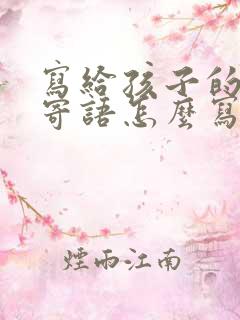 寫給孩子的
寄語怎麼寫
煙雨江南